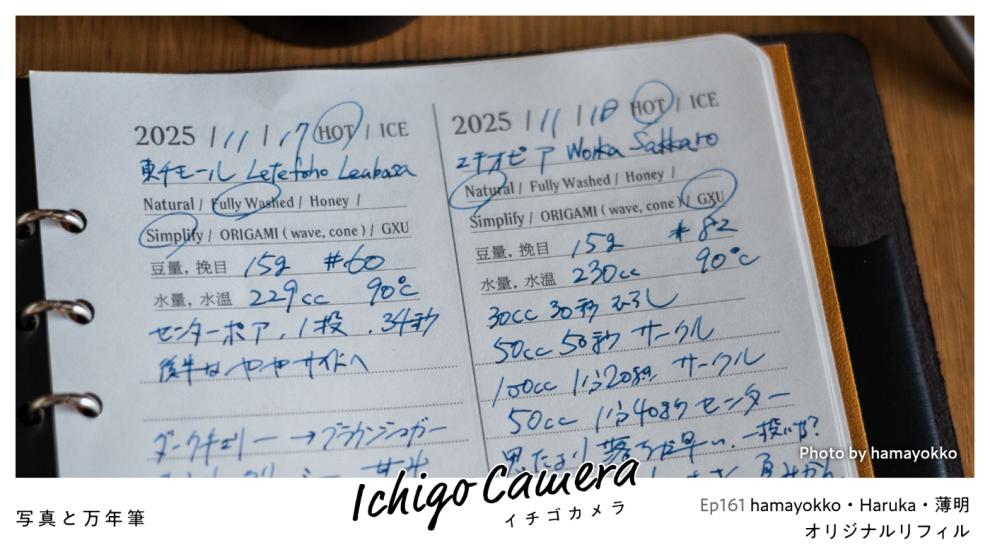 2025 / 11 / 17 HOT / ICE
東チモール Letefoho Leabasa
Natural / Fully Washed / Honey /
Simplify / ORIGAMI ( wave, cone ) / GXU
豆量, 挽目 15g #60
水量, 水温 229cc 90℃
センターポア. 1投. 34秒
後半はややサイドへ
ダークチェリー → ブラウンシュガー
2025 / 11 / 18 HOT / ICE
エチオピア Worka Sakkaro
Natural / Fully Washed / Honey /
Simplify / ORIGAMI ( wave, cone ) / GXU
豆量, 挽目 15g #82
水量, 水温 230cc 90℃
30cc 30秒 むらし
50cc 50秒 サークル
100cc 1分20秒 サークル
50cc 1分40秒 センター
思ったより落ちが早い. 一投いける?
Photo by hamayokko
Ichigo Camera
イチゴカメラ
写真と万年筆
Ep161 hamayokko・Haruka・薄明
オリジナルリフィル